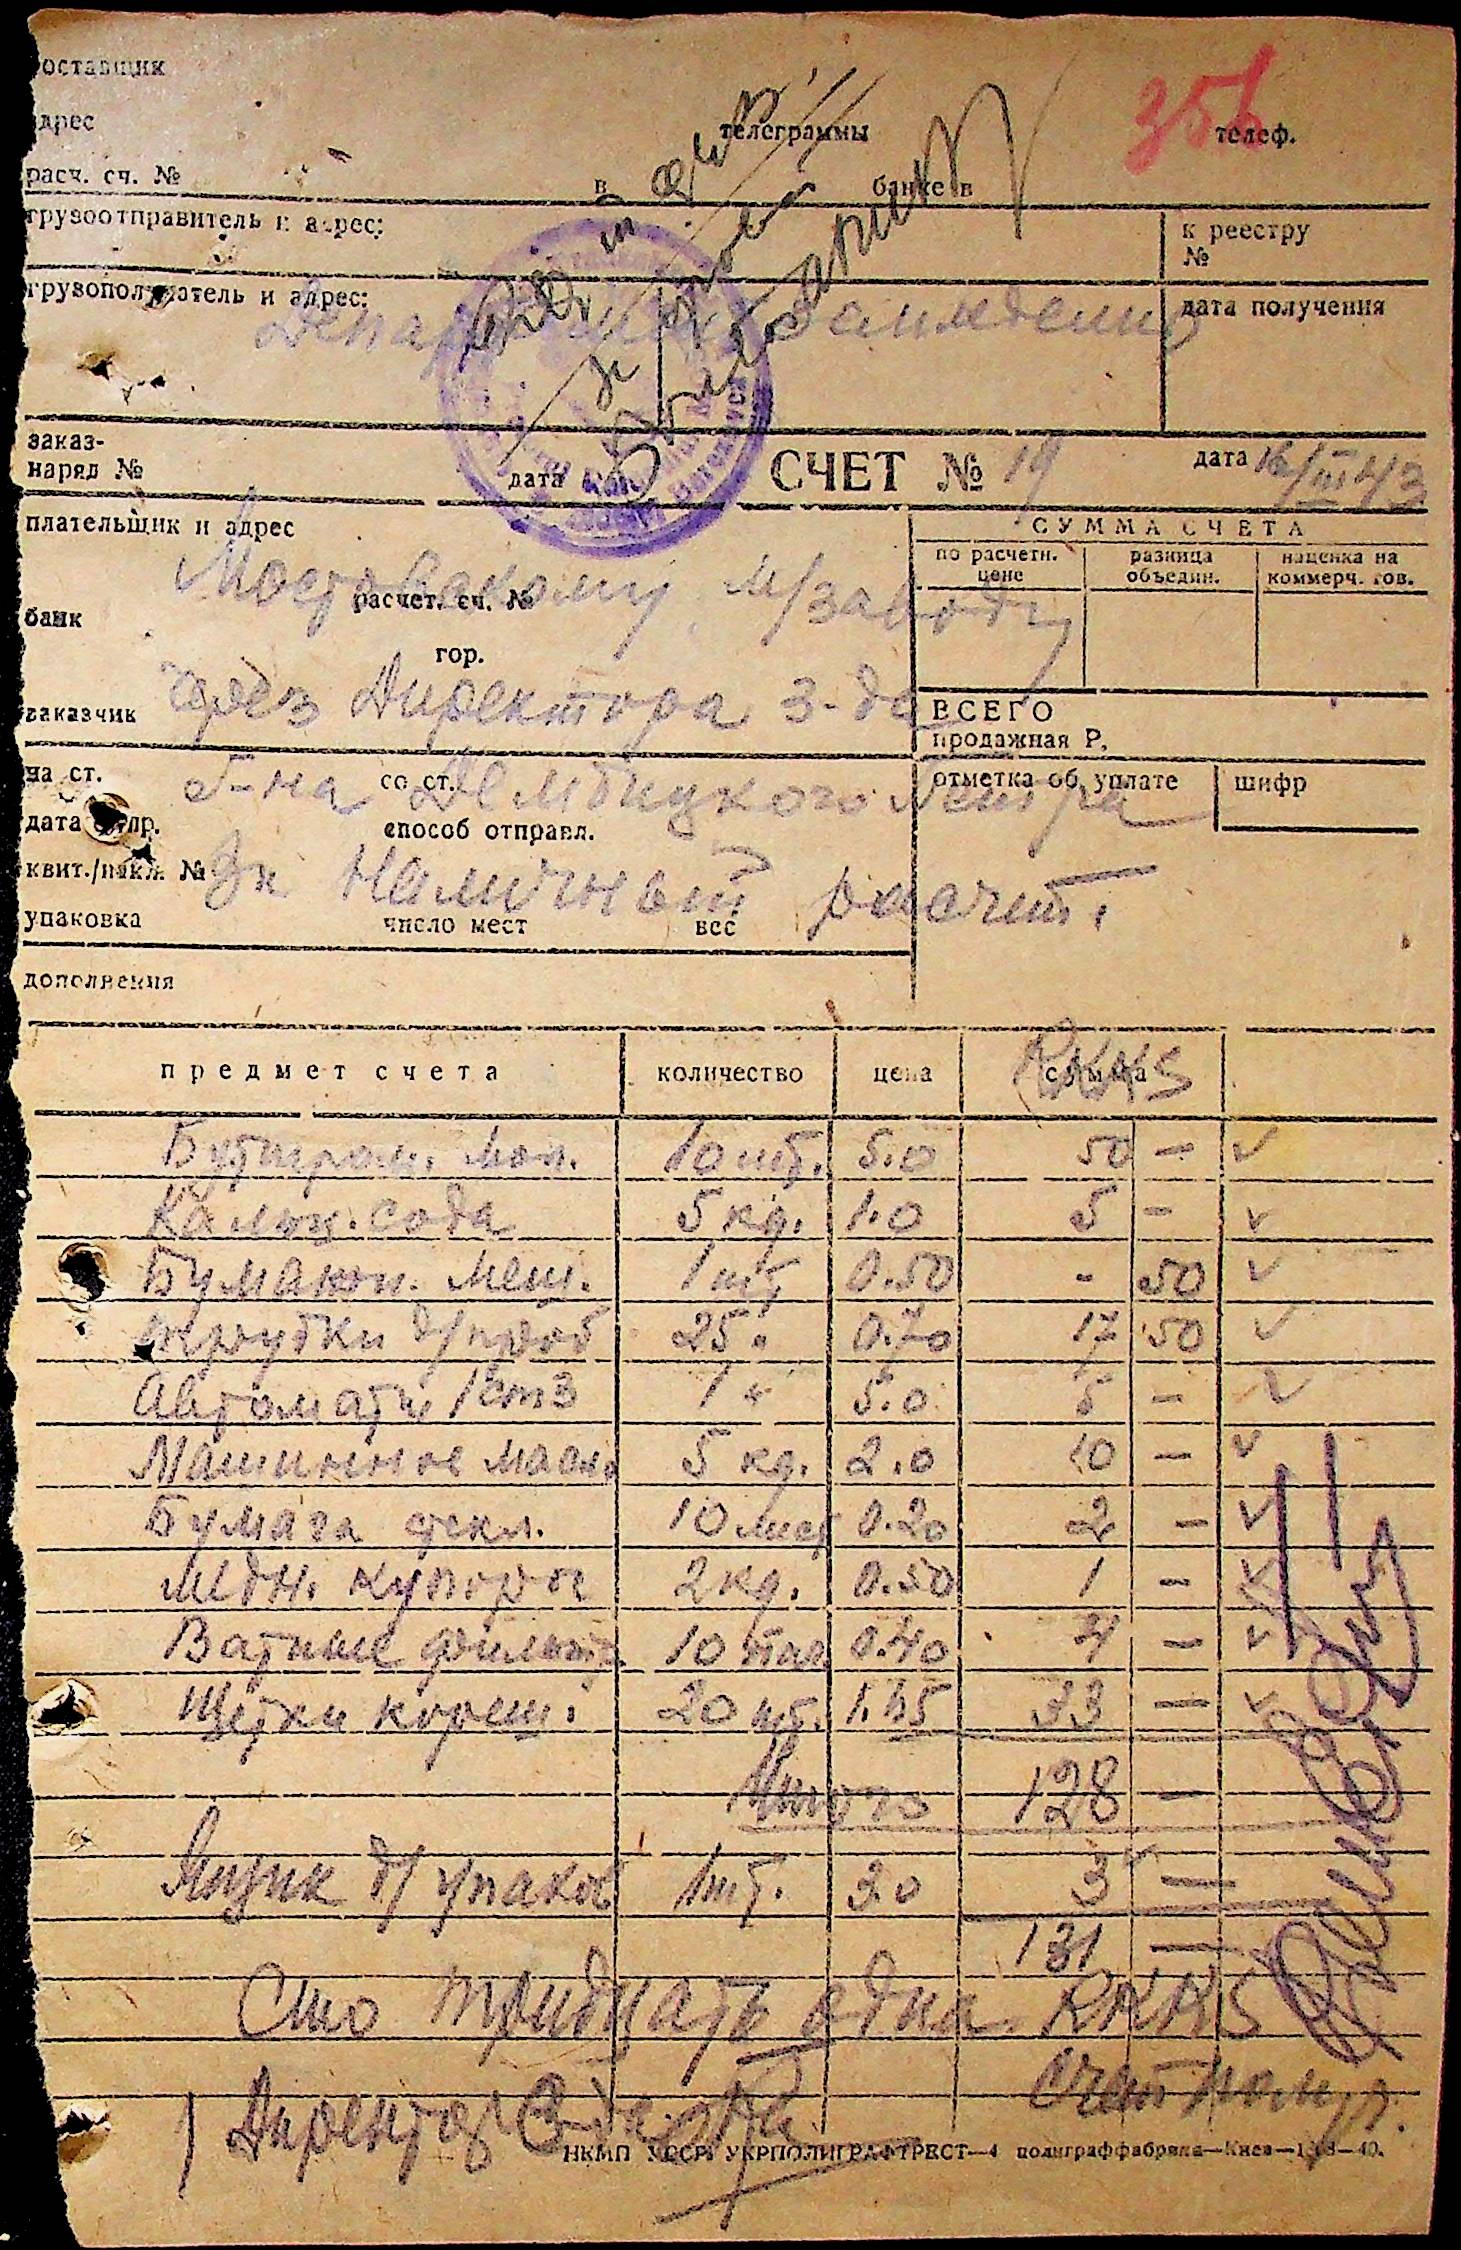 оставщик
дрес
телеграммы
телеф.
расч. сч. №
в
банке в
грузоотправитель и адрес:
к реестру
№
грузополучатель и адрес:
дата получения
заказ-
наряд №
дата
СЧЕТ № 19
дата 16/III 43
плательщик и адрес
СУММА СЧЕТА
по расчетн. цене
разница объедин.
наценка на коммерч. тов.
Мостовскому м/заводу
расчет. сч. №
банк
гор.
через Директора з-да
заказчик
ВСЕГО
продажная Р.
на ст.
со ст.
г-на Дембицкого Петра
отметка об уплате
шифр
дата отпр.
способ отправл.
За Наличный расчет.
квит./накл. №
упаковка
число мест
вес
дополнения
предмет счета количество цена сумма
RKKS
Бутиром. мол. 10 шт. 5.0 50 —
Кальц. сода 5 кг. 1.0 5 —
1 шт 0.50 - 50
трубки д/проб 25 " 0.70 17 50
1 " 5.0 5 —
Машинное масло 5 кг. 2.0 10 —
Бумага стекл. 10 лист 0.20 2 —
Медн. купорос 2 кг. 0.50 1 —
Ватные фильтр. 10 0.40 4 —
Щетки кореш. 20 шт. 1.65 33 —
Итого 128 —
Ящик д/упаков 1 шт. 3.0 3 —
131 —
Сто тридцать одна RKKS
Директор З-да
Счетпом
НКМП УССР УКРПОЛИГРАФТРЕСТ—4 полиграффабрика—Киев—